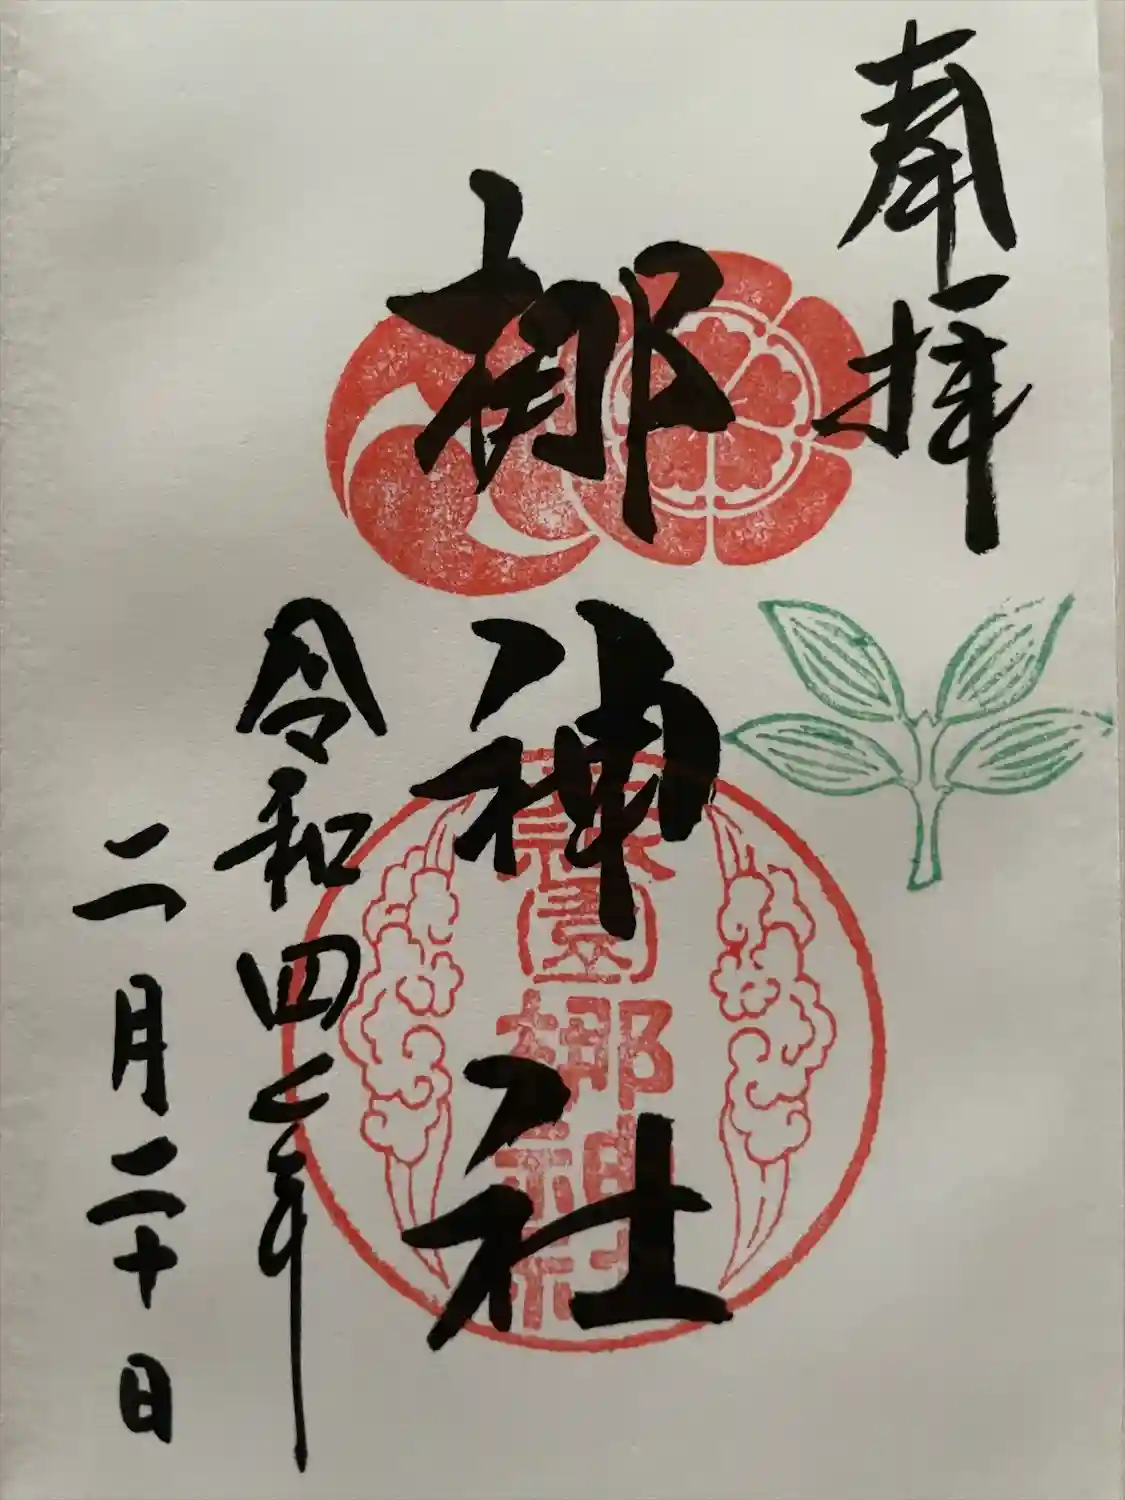 奉拝
梛神社
元祇園梛神社
令和四年
二月二十日